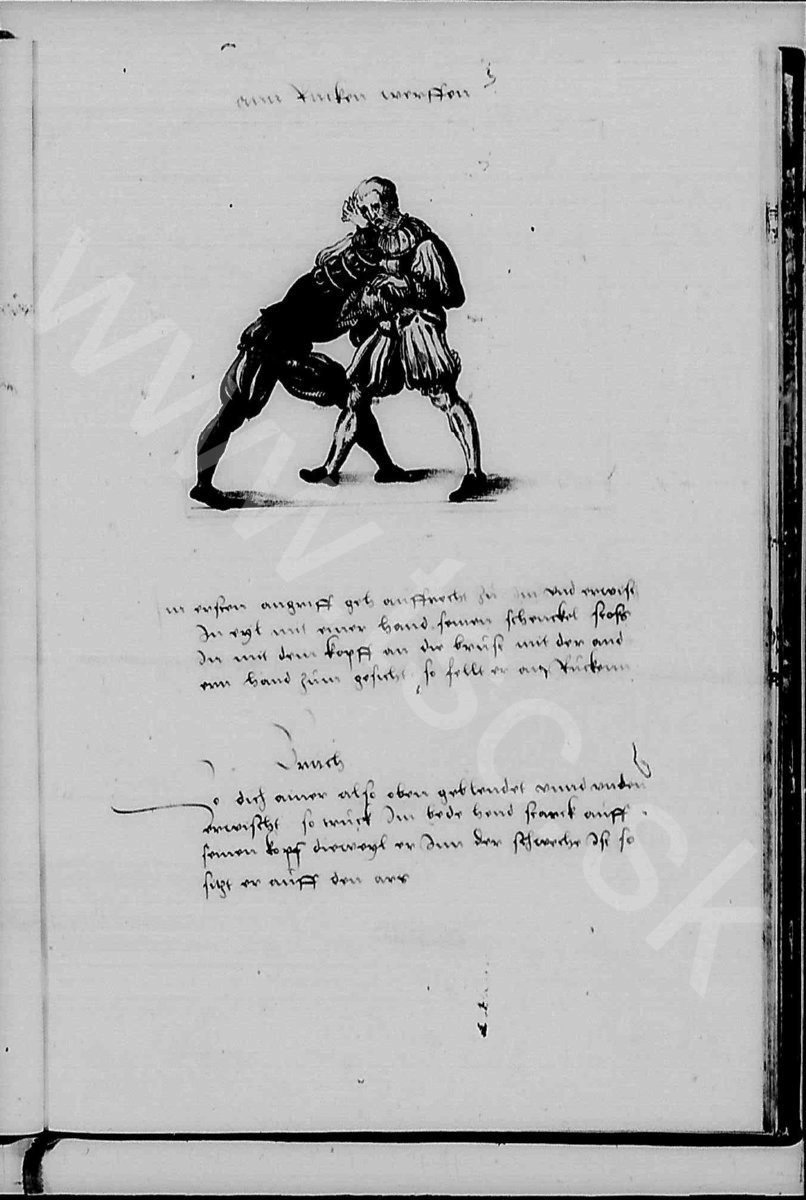 ann Rucken werffen
m ersten angriff geh auffrecht zu im vnd erwisch
In eyl mit einer hand seinen schenckel stoss
In mit dem kopff an die bruse mit der and
ern hand zum gesicht so fellt er an Ruckenn
Bruch
o dich ainer also oben geblendet vnnd vnden
erwischt so truck Im bede hend starck auff
seinen kopf dieweyl er Inn der schweche Ist so
sizt er auff den ars
www.sc.sk